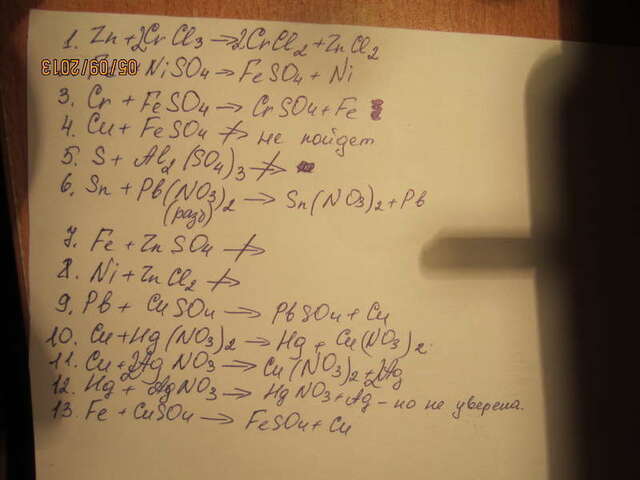 1. Zn + 2CrCl3 → 2CrCl2 + ZnCl2
05/09/2013 NiSO4 → FeSO4 + Ni
3. Cr + FeSO4 → CrSO4 + Fe
4. Cu + FeSO4 ↛ не пойдет
5. S + Al2(SO4)3 ↛
6. Sn + Pb(NO3)2 → Sn(NO3)2 + Pb
(разб)
7. Fe + ZnSO4 ↛
8. Ni + ZnCl2 ↛
9. Pb + CuSO4 → PbSO4 + Cu
10. Cu + Hg(NO3)2 → Hg + Cu(NO3)2.
11. Cu + 2AgNO3 → Cu(NO3)2 + 2Ag
12. Hg + AgNO3 → HgNO3 + Ag - но не уверена.
13. Fe + CuSO4 → FeSO4 + Cu